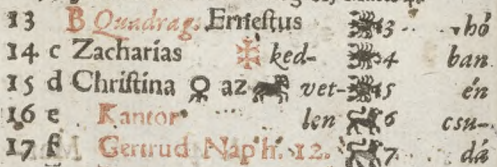 13 B Quadrag. Ernestus 3 hó
14 c Zacharias ked- 4 ban
15 d Chriſtina ♀ az vet- 5 én
16 e Kantor len 6 csu-
17 f Gertrud Nap h. 12. 7 dá